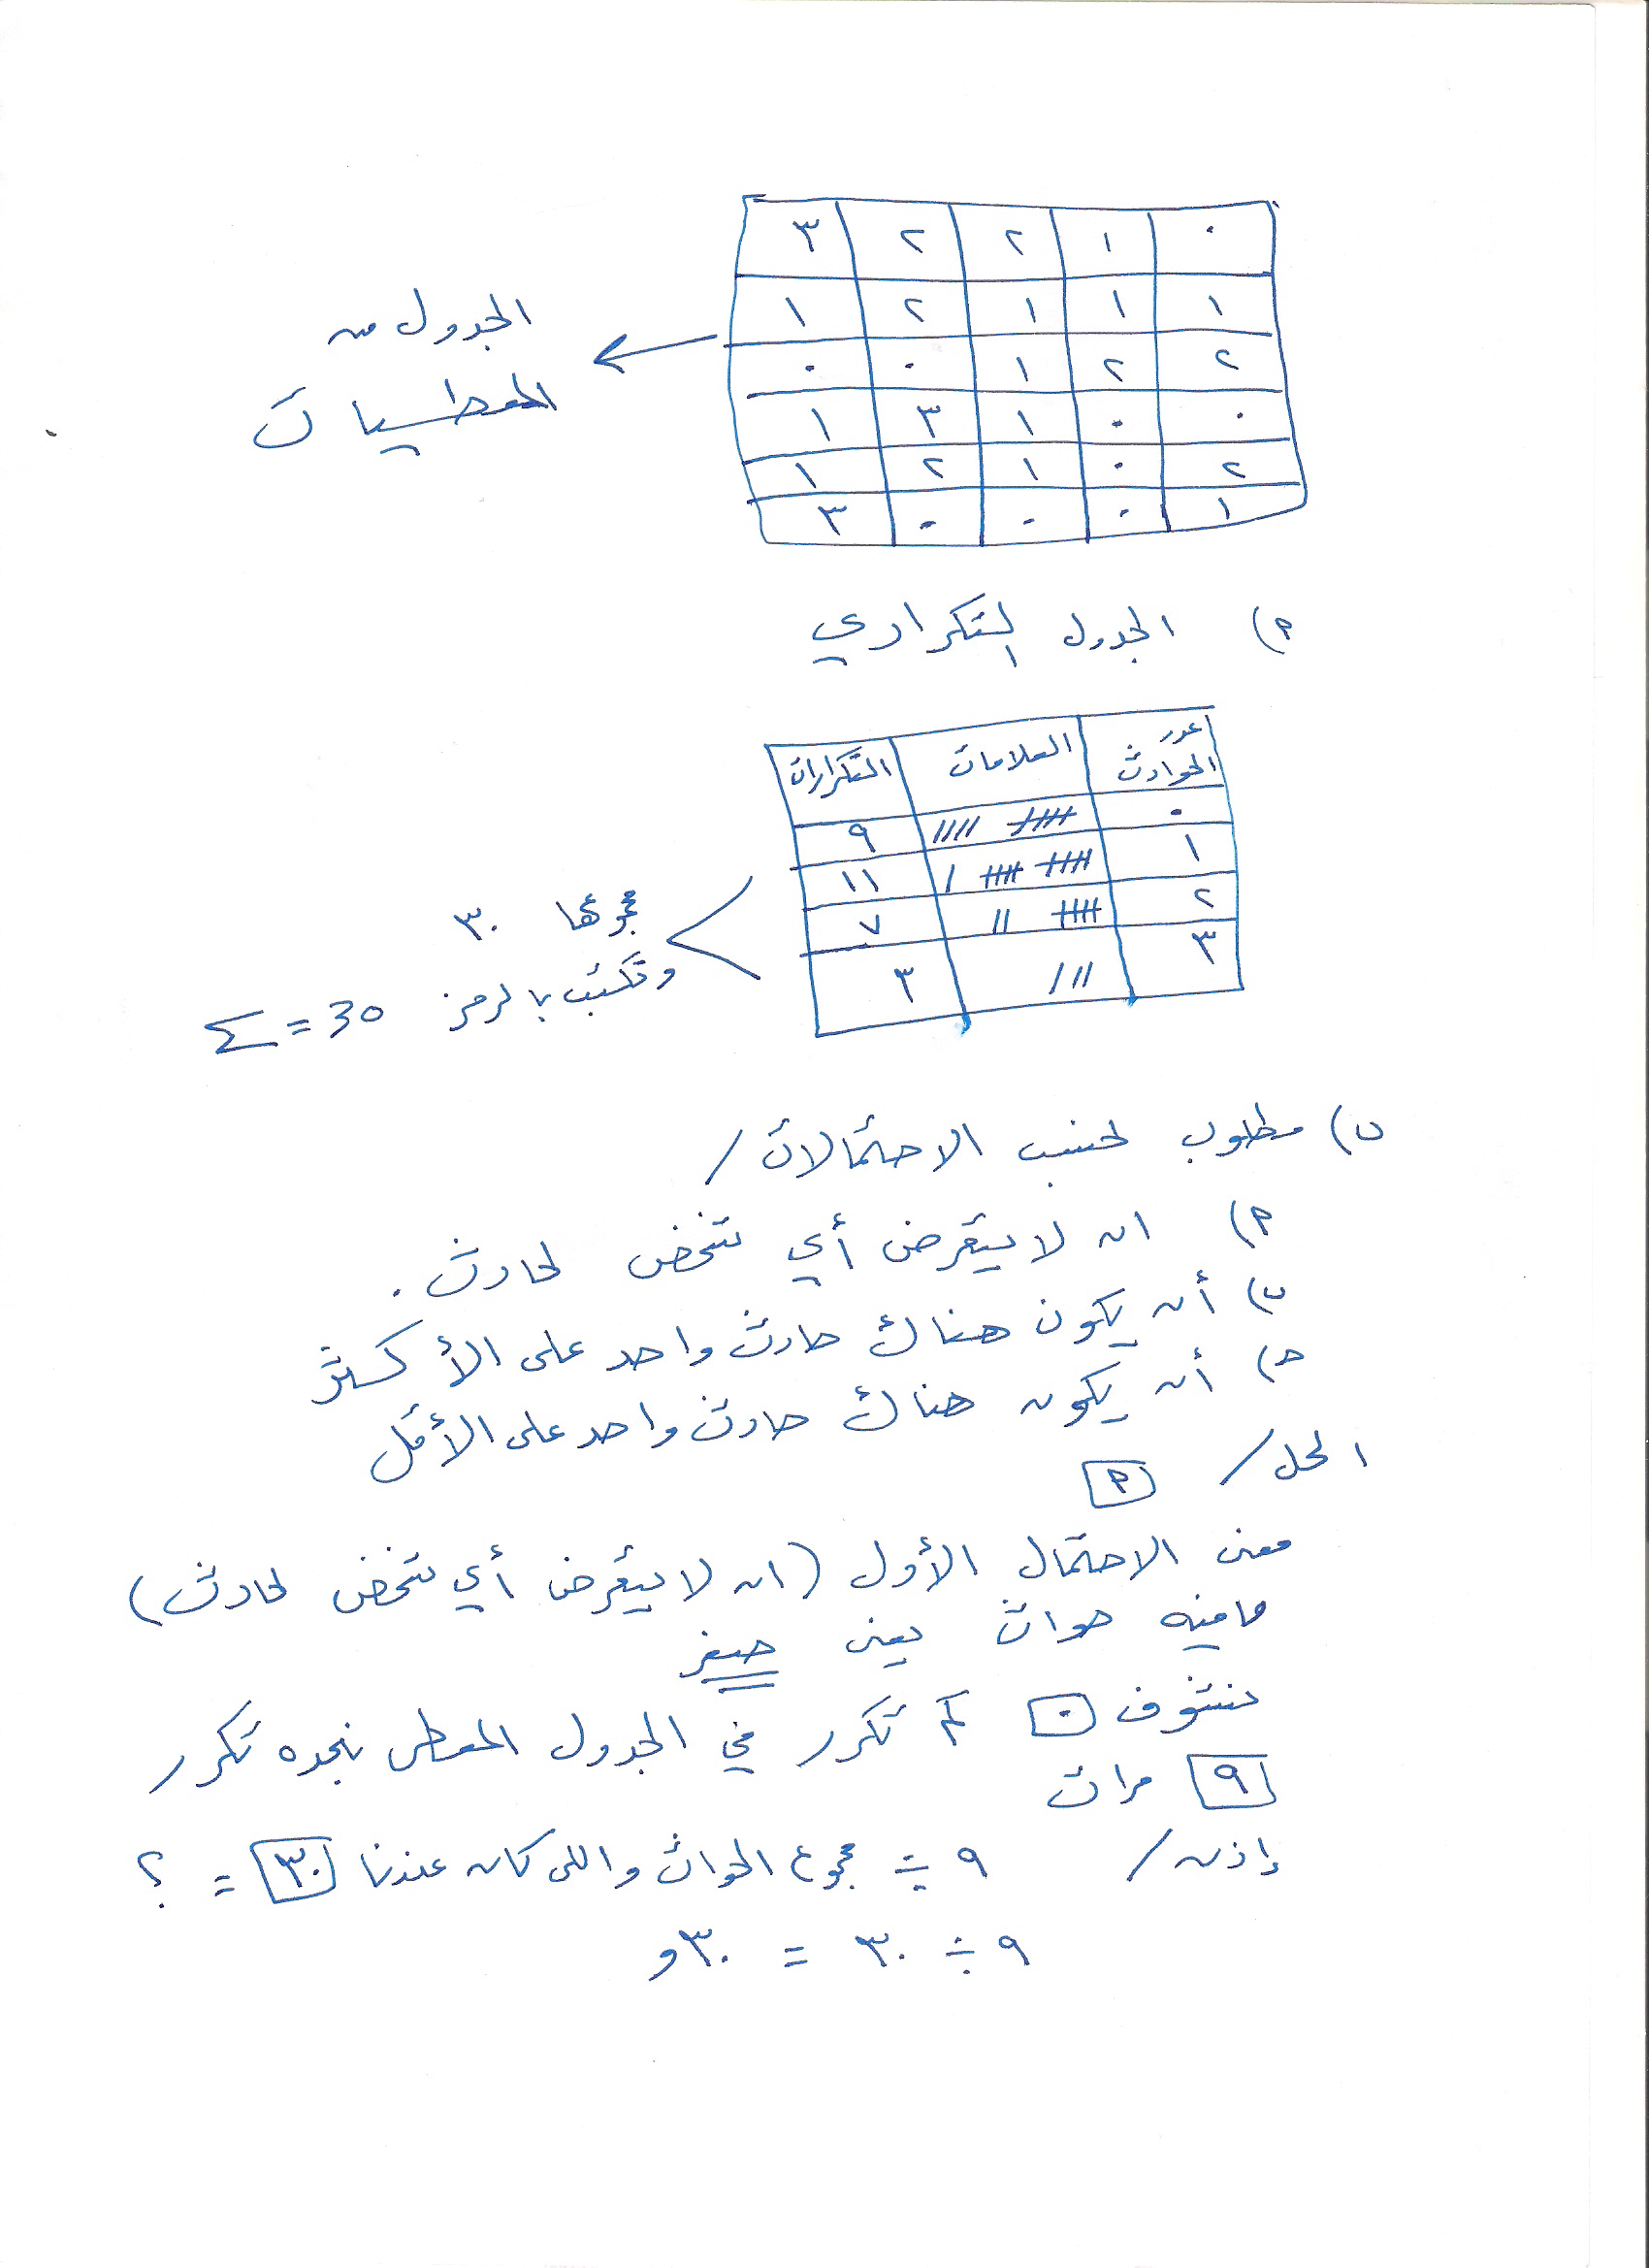 ٠ ١ ٢ ٢ ٣
١ ١ ١ ٢ ١
٢ ٢ ١ ٠ ٠
٠ ٠ ١ ٣ ١
٢ ٠ ١ ٢ ١
١ ٠ ٠ ٠ ٣
الجدول من
المعطيات
أ) الجدول التكراري
عدد الحوادث العلامات التكرارات
٠ //// //// ٩
١ //// //// / ١١
٢ //// // ٧
٣ /// ٣
مجموعها ٣٠
وتكتب بالرمز 30 = Σ
ب) مطلوب نحسب الاحتمالات /
أ) ان لا يتعرض أي شخص لحادث .
ب) أن يكون هناك حادث واحد على الأكثر
ج) أن يكون هناك حادث واحد على الأقل
الحل / أ
معنى الاحتمال الأول (ان لا يتعرض أي شخص لحادث)
مافيه حوادث يعني صفر
نشوف ٠ كم تكرر في الجدول المعطى نجده تكرر
٩ مرات
إذن / ٩ ÷ مجموع الحوادث واللي كان عندنا ٣٠ = ؟
٩ ÷ ٣٠ = ٣٠و